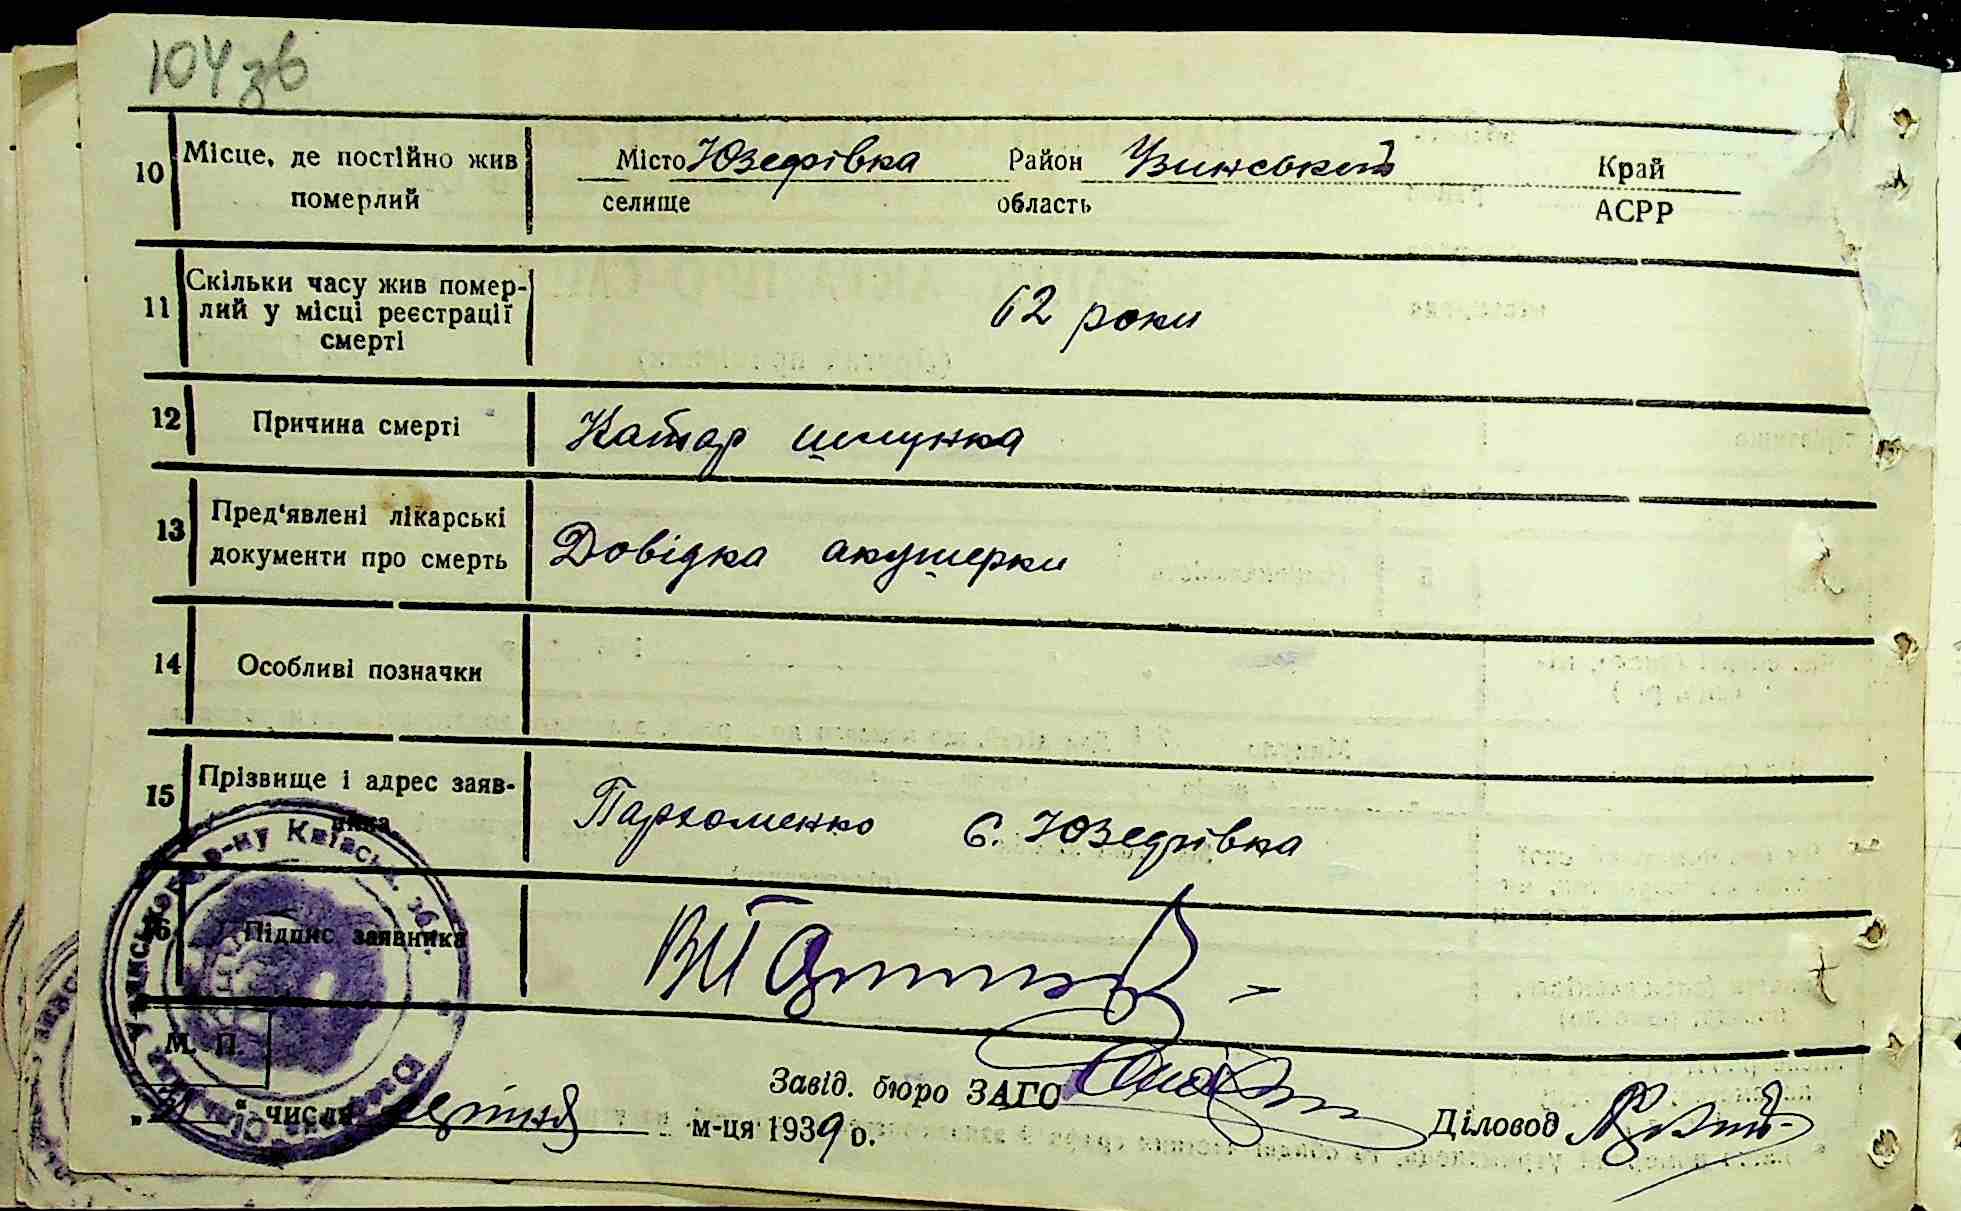 104 зв
10 Місце, де постійно жив померлий
Місто Юзефівка Район Узинський Край
селище область АСРР
11 Скільки часу жив помер-
лий у місці реєстрації
смерті
62 роки
12 Причина смерті Катар шлунка
13 Пред'явлені лікарські
документи про смерть
Довідка акушерки
14 Особливі позначки
15 Прізвище і адрес заяв-
ника
Пархоменко с. Юзефівка
16 Підпис заявника
М. П.
Завід. бюро ЗАГС
" " числа м-ця 1939 р. Діловод